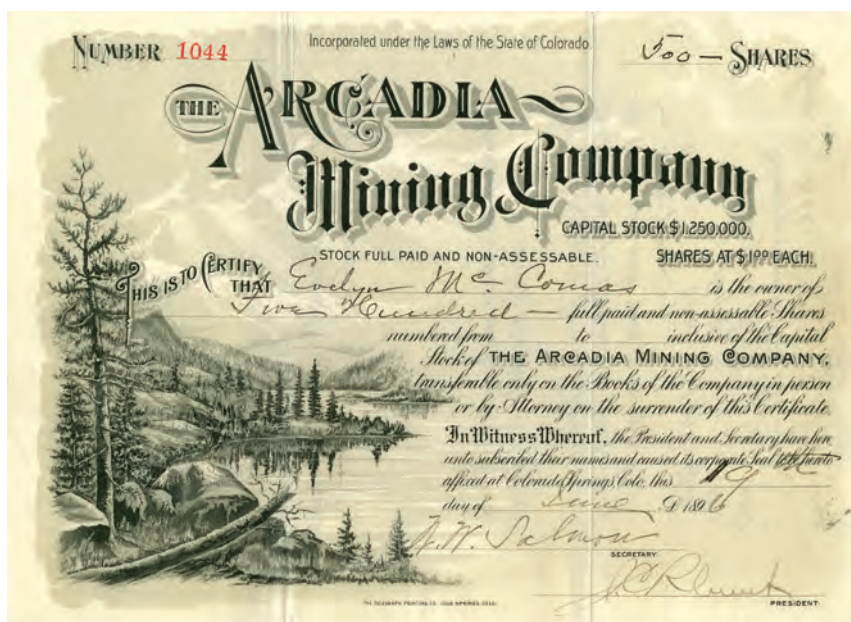 NUMBER 1044
Incorporated under the Laws of the State of Colorado.
500 — SHARES
THE ARCADIA
Mining Company
CAPITAL STOCK $1,250,000.
STOCK FULL PAID AND NON-ASSESSABLE. SHARES AT $1.00 EACH.
THIS IS TO CERTIFY THAT Evelyn Mc Comas is the owner of
Five Hundred — full paid and non-assessable Shares
numbered from to inclusive of the Capital
Stock of THE ARCADIA MINING COMPANY,
transferable only on the Books of the Company in person
or by Attorney on the surrender of this Certificate.
In Witness Whereof, the President and Secretary have here
unto subscribed their names and caused its corporate Seal to be hereto
affixed at Colorado Springs, Colo. this 19
day of June A.D. 1896
SECRETARY.
PRESIDENT.